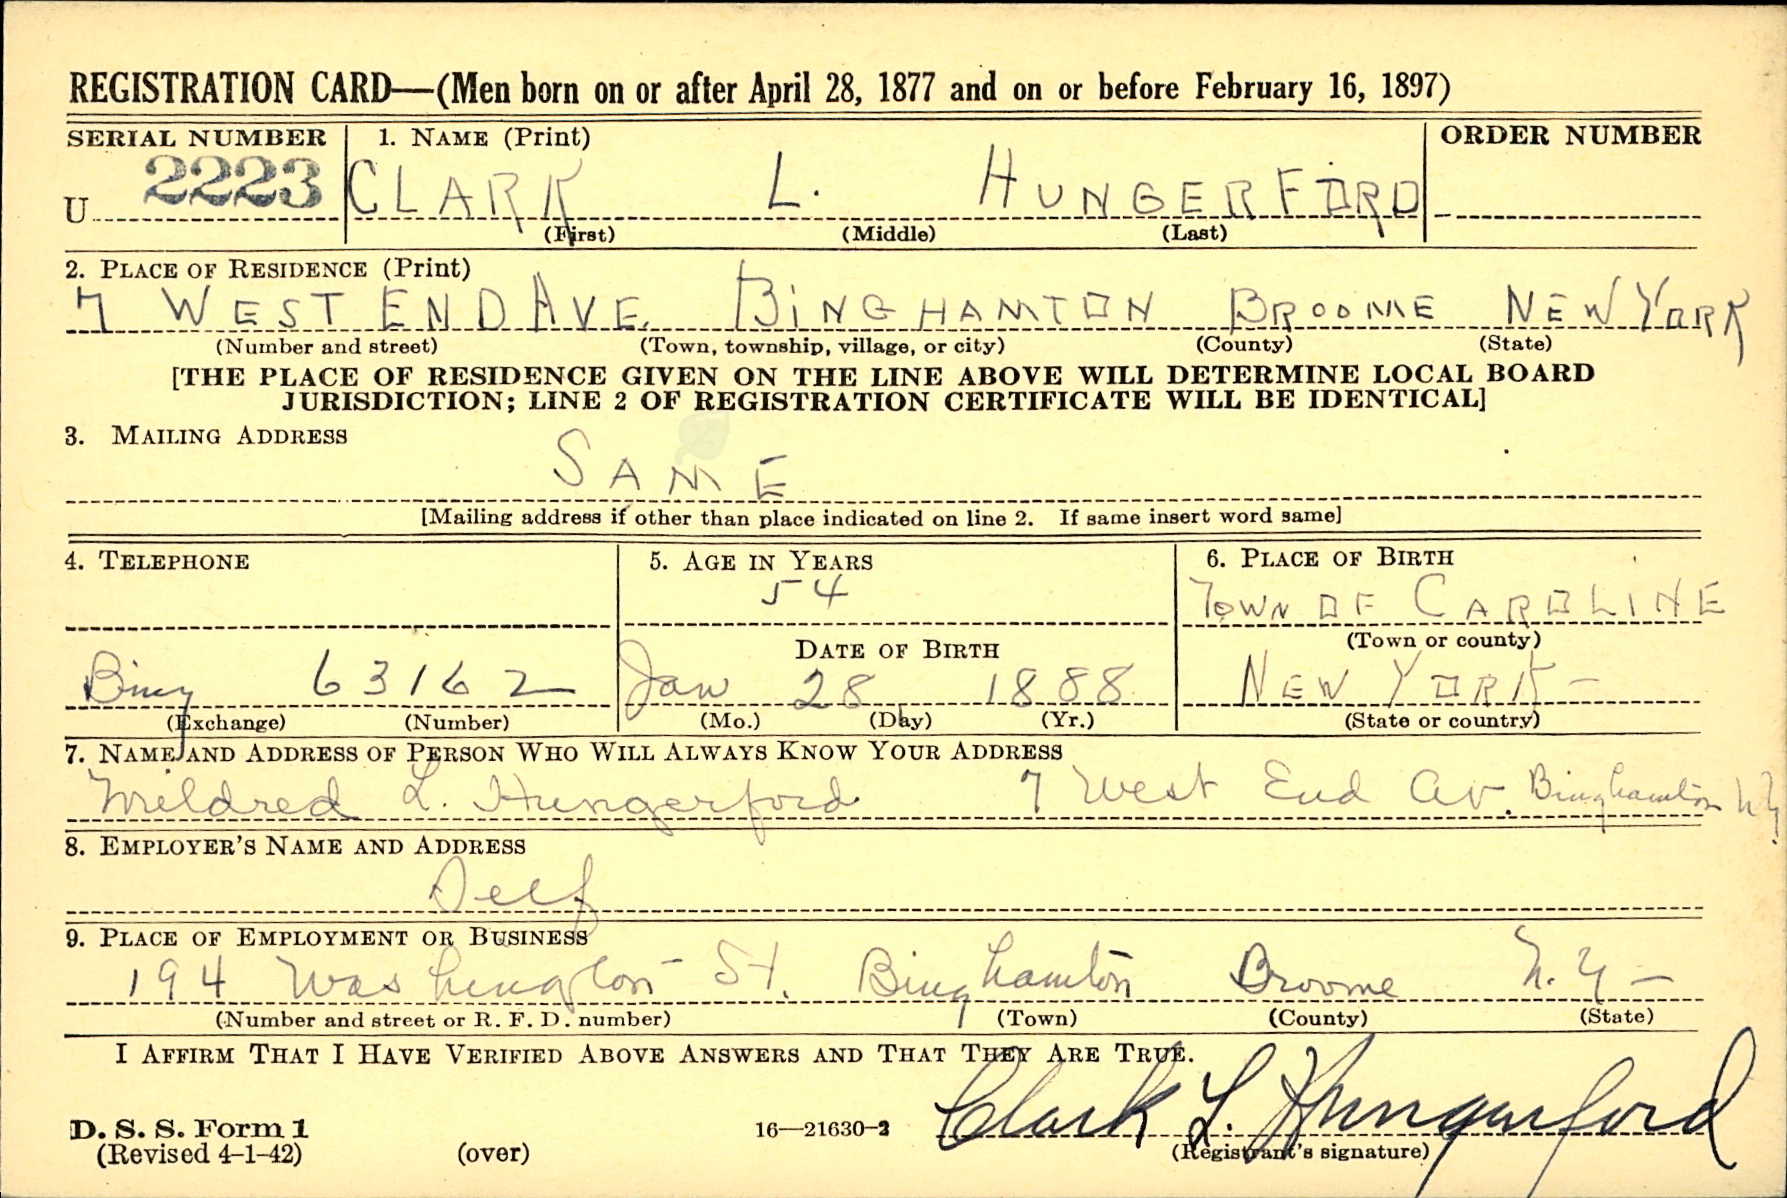 REGISTRATION CARD—(Men born on or after April 28, 1877 and on or before February 16, 1897)
SERIAL NUMBER 1. NAME (Print) ORDER NUMBER
U 2223 CLARK L. HUNGERFORD
(First) (Middle) (Last)
2. PLACE OF RESIDENCE (Print)
7 WEST END AVE. BINGHAMTON BROOME NEW YORK
(Number and street) (Town, township, village, or city) (County) (State)
[THE PLACE OF RESIDENCE GIVEN ON THE LINE ABOVE WILL DETERMINE LOCAL BOARD
JURISDICTION; LINE 2 OF REGISTRATION CERTIFICATE WILL BE IDENTICAL]
3. MAILING ADDRESS
SAME
[Mailing address if other than place indicated on line 2. If same insert word same]
4. TELEPHONE 5. AGE IN YEARS 6. PLACE OF BIRTH
54 TOWN OF CAROLINE
DATE OF BIRTH (Town or county)
Bing 63162 Jan 28 1888 NEW YORK -
(Exchange) (Number) (Mo.) (Day) (Yr.) (State or country)
7. NAME AND ADDRESS OF PERSON WHO WILL ALWAYS KNOW YOUR ADDRESS
Mildred L. Hungerford 7 West End Av. Binghamton NY.
8. EMPLOYER'S NAME AND ADDRESS
Self
9. PLACE OF EMPLOYMENT OR BUSINESS
194 Washington St. Binghamton Broome N.Y-
(Number and street or R. F. D. number) (Town) (County) (State)
I AFFIRM THAT I HAVE VERIFIED ABOVE ANSWERS AND THAT THEY ARE TRUE.
Clark L. Hungerford
D. S. S. Form 1 16—21630-2
(Revised 4-1-42) (over) (Registrant's signature)